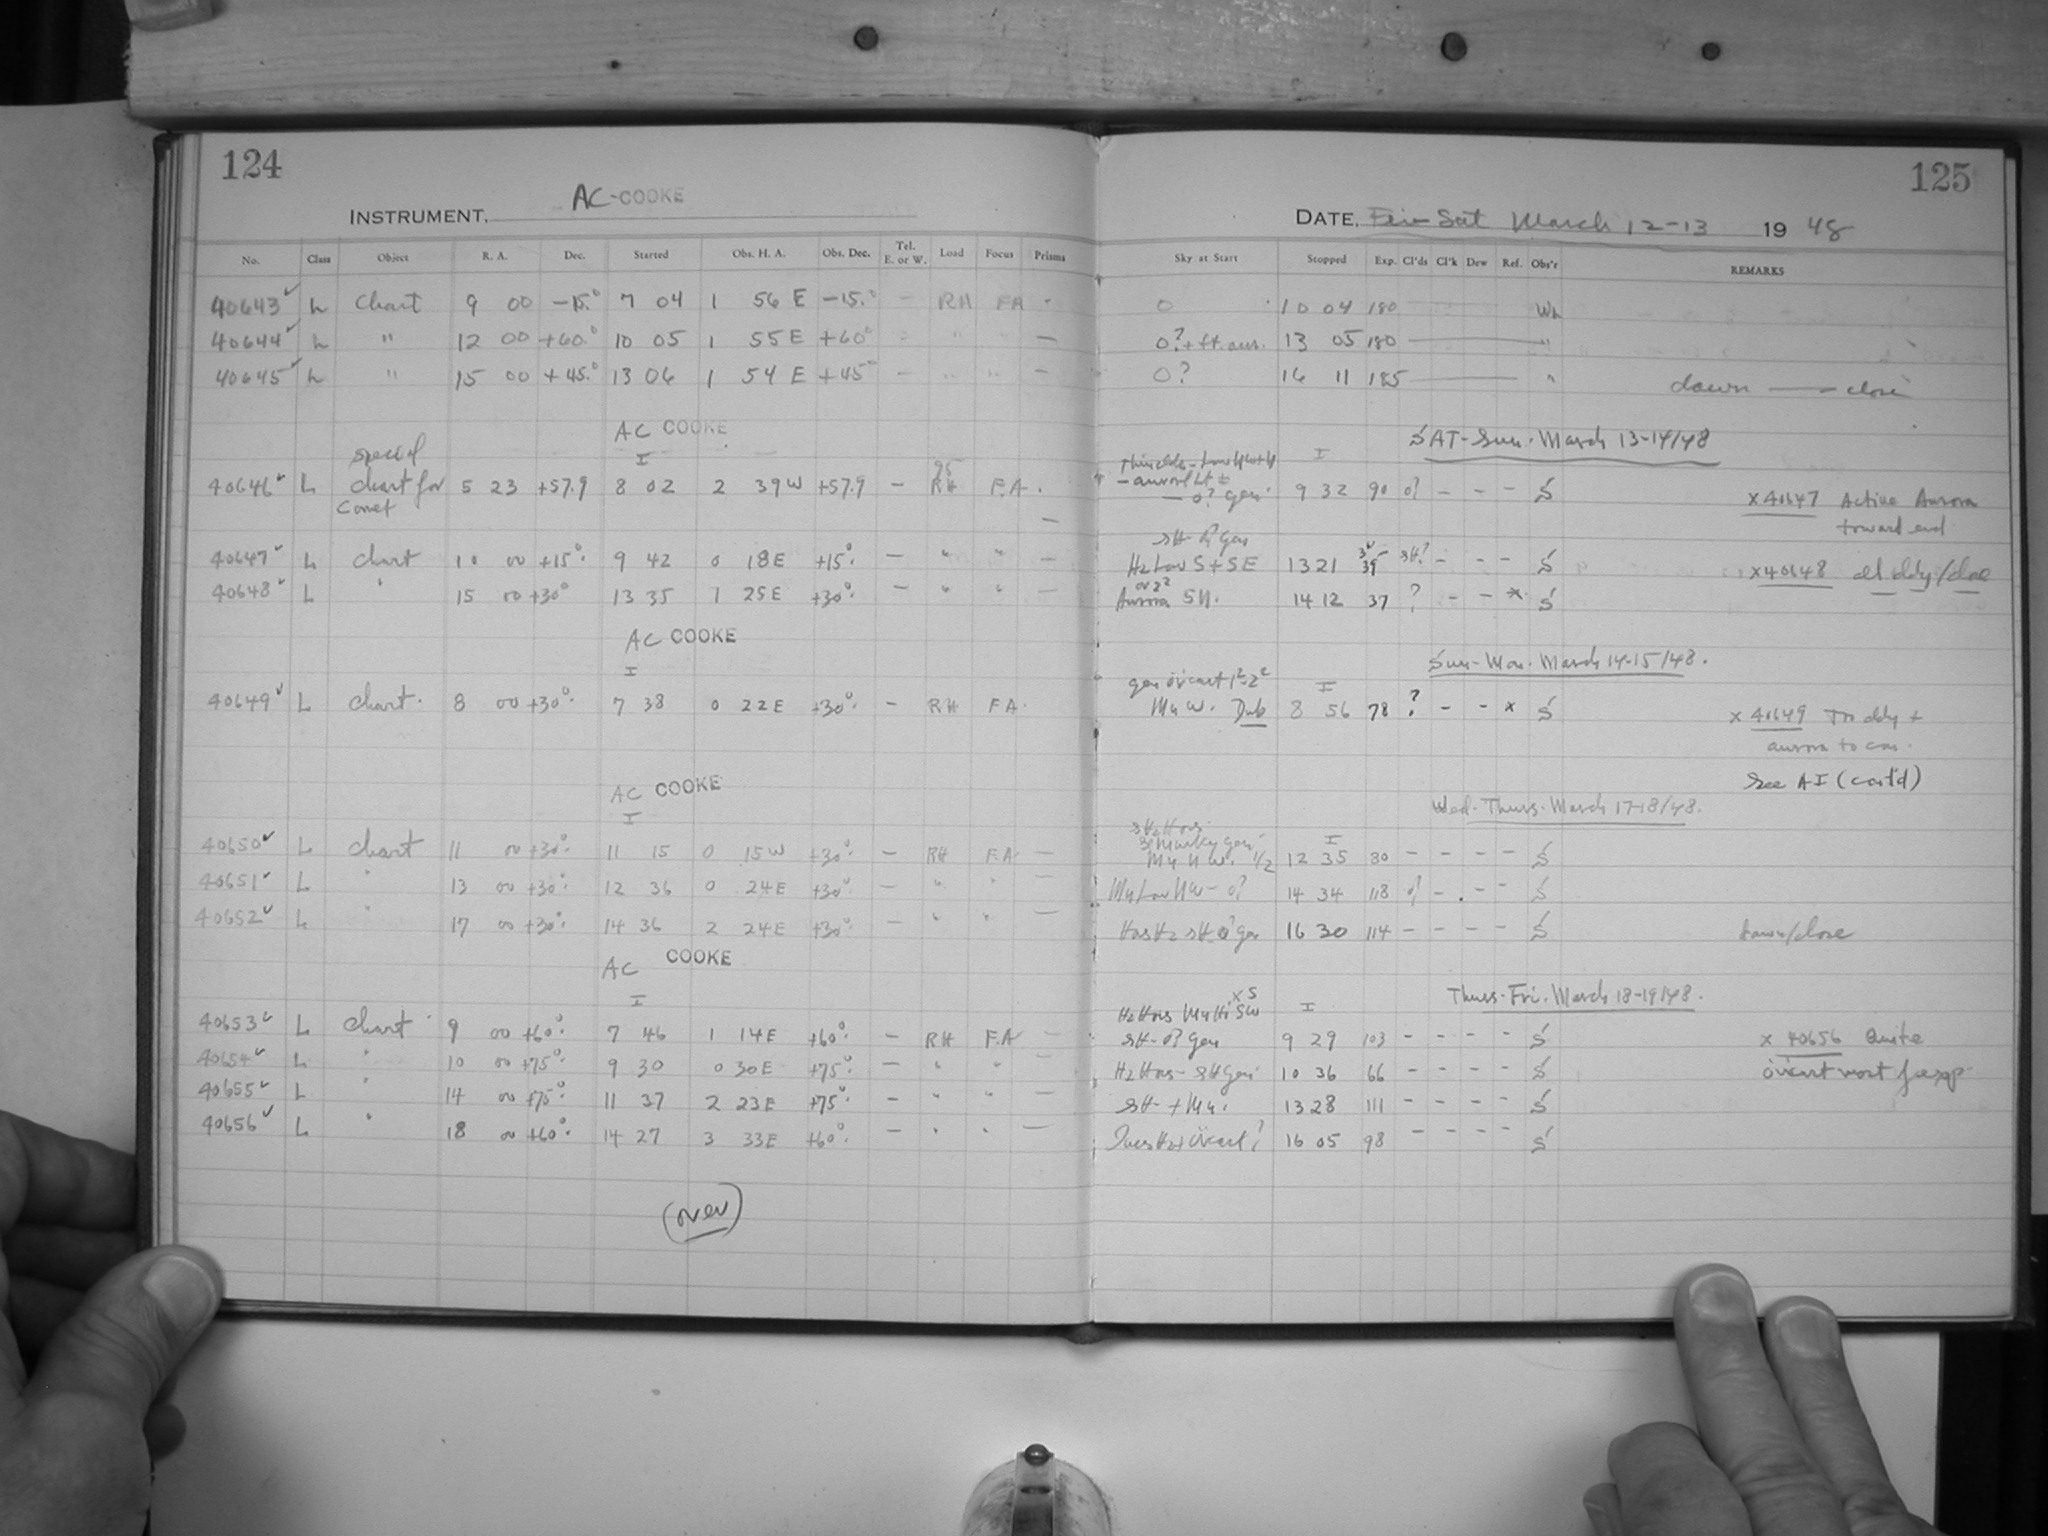 124
AC-COOKE
INSTRUMENT.
No. Class Object R. A. Dec. Started Obs. H. A. Obs. Dec. Tel. E. or W. Load Focus Prisms
40643 L Chart 9 00 -15.° 7 04 1 56 E -15.° - RH FA -
40644 L " 12 00 +60.° 10 05 1 55 E +60° - " " -
40645 L " 15 00 +45.° 13 06 1 54 E +45° - " " -
AC COOKE
I
special
40646 L chart for 5 23 +57.9 8 02 2 39 W +57.9 - RH F.A.
Comet
40647 L chart 10 00 +15° 9 42 0 18E +15° - " " -
40648 L " 15 00 +30° 13 35 1 25E +30° - " " -
AC COOKE
I
40649 L chart 8 00 +30° 7 38 0 22E +30° - RH F.A.
AC COOKE
I
40650 L chart 11 00 +30° 11 15 0 15W +30° - RH F.A. -
40651 L " 13 00 +30° 12 36 0 24E +30° - " " -
40652 L " 17 00 +30° 14 36 2 24E +30° - " " -
AC COOKE
I
40653 L chart 9 00 +60° 7 46 1 14E +60° - RH F.A. -
40654 L " 10 00 +75° 9 30 0 30E +75° - " " -
40655 L " 14 00 +75° 11 37 2 23E +75° - " " -
40656 L " 18 00 +60° 14 27 3 33E +60° - " " -
(over)
125
DATE, Fri-Sat March 12-13 1948
Sky at Start Stopped Exp. Cl'ds Cl'k Dew Ref. Obs'r REMARKS
0 10 04 180 Wh
0? + ft. aur. 13 05 180 "
0? 16 11 185 " dawn — close
SAT-Sun. March 13-14/48
I
- 0? gen 9 32 90 0? - - - S x40647 Active Aurora
toward end
SH- 0? gen
Hz Low S + SE 13 21 SH? - - - S x40648 cldy/close
Aurora SH. 14 12 37 ? - - x S
Sun-Mon. March 14-15/48.
gen ovcast 1²-2² I
My W. Dub 8 56 78 ? - - x S x 40649 cldy +
aurora to
See AI (cont'd)
Wed-Thurs. March 17-18/48.
I
My N W. 1/2 12 35 80 - - - - S
My Low NW - 0? 14 34 118 0? - - - S
16 30 114 - - - - S dawn/close
Thurs-Fri. March 18-19/48.
x S
SW I
SH- 0? gen 9 29 103 - - - - S x 40656 Quite
SH gen 10 36 66 - - - - S ovcast most of exp
SH- + My. 13 28 111 - - - - S
ovcast? 16 05 98 - - - - S